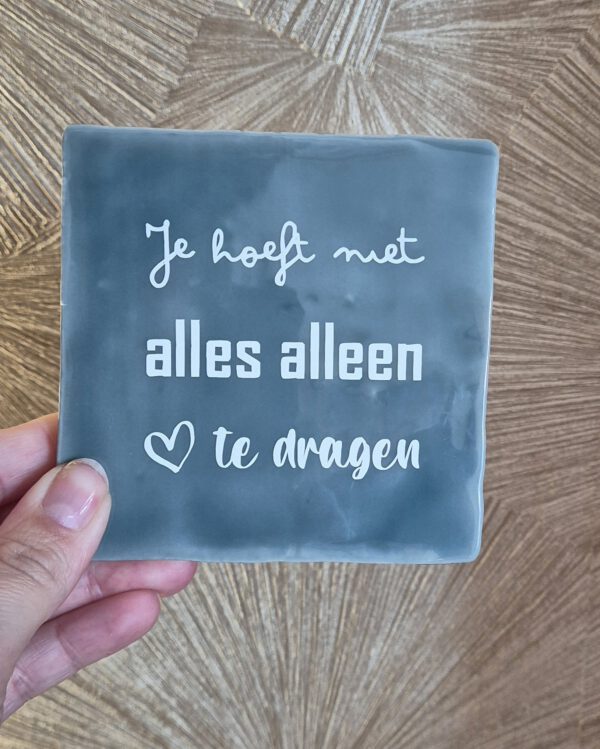 Je hoeft niet
alles alleen
te dragen